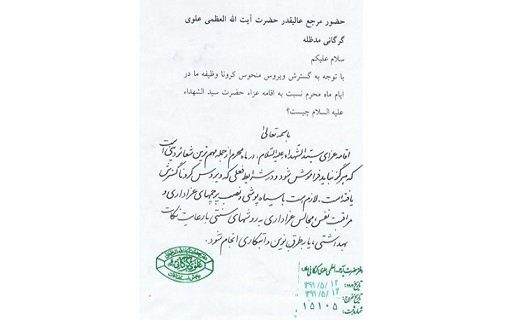 حضور مرجع عالیقدر حضرت آیت الله العظمی علوی
گرگانی مدظله
سلام علیکم
با توجه به گسترش ویروس منحوس کرونا وظیفه ما در
ایام ماه محرم نسبت به اقامه عزاء حضرت سید الشهداء
علیه السلام چیست؟
باسمه تعالی
اقامه عزای سید الشهداء علیه السلام، در ماه محرم از جمله مهم ترین شعائر دینی است
که هرگز نباید فراموش شود و در شرایط فعلی که ویروس کرونا گسترش
یافته است. لازم است با سیاه پوشی و نصب پرچمهای عزاداری و
مراقبت نفس مجالس عزاداری به روشهای سنتی با رعایت نکات
بهداشتی، یا به طرق نوین و ابتکاری انجام شود.
علوی گرگانی
دفتر حضرت آیت الله العظمی علوی گرگانی
تاریخ ورود: ۱۳۹۹/۵/۱۲
تاریخ خروج: ۱۳۹۹/۵/۱۲
شماره ثبت: ۱۵۱۰۵